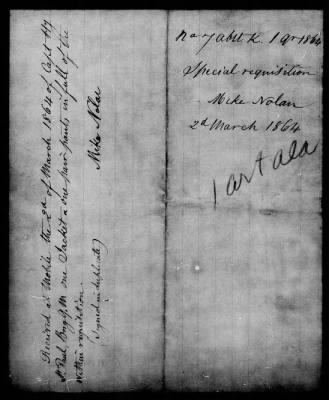 Received at Mobile the 2d of March 1864 of Capt Hy
St Paul, Brig Q.M. one Jacket & one pair pants in full of the
within requisition.
(Signed in duplicate)
Mike Nolan
No 7 Abst K. 1 Qr 1864
Special requisition
Mike Nolan
2d March 1864
1 art ala